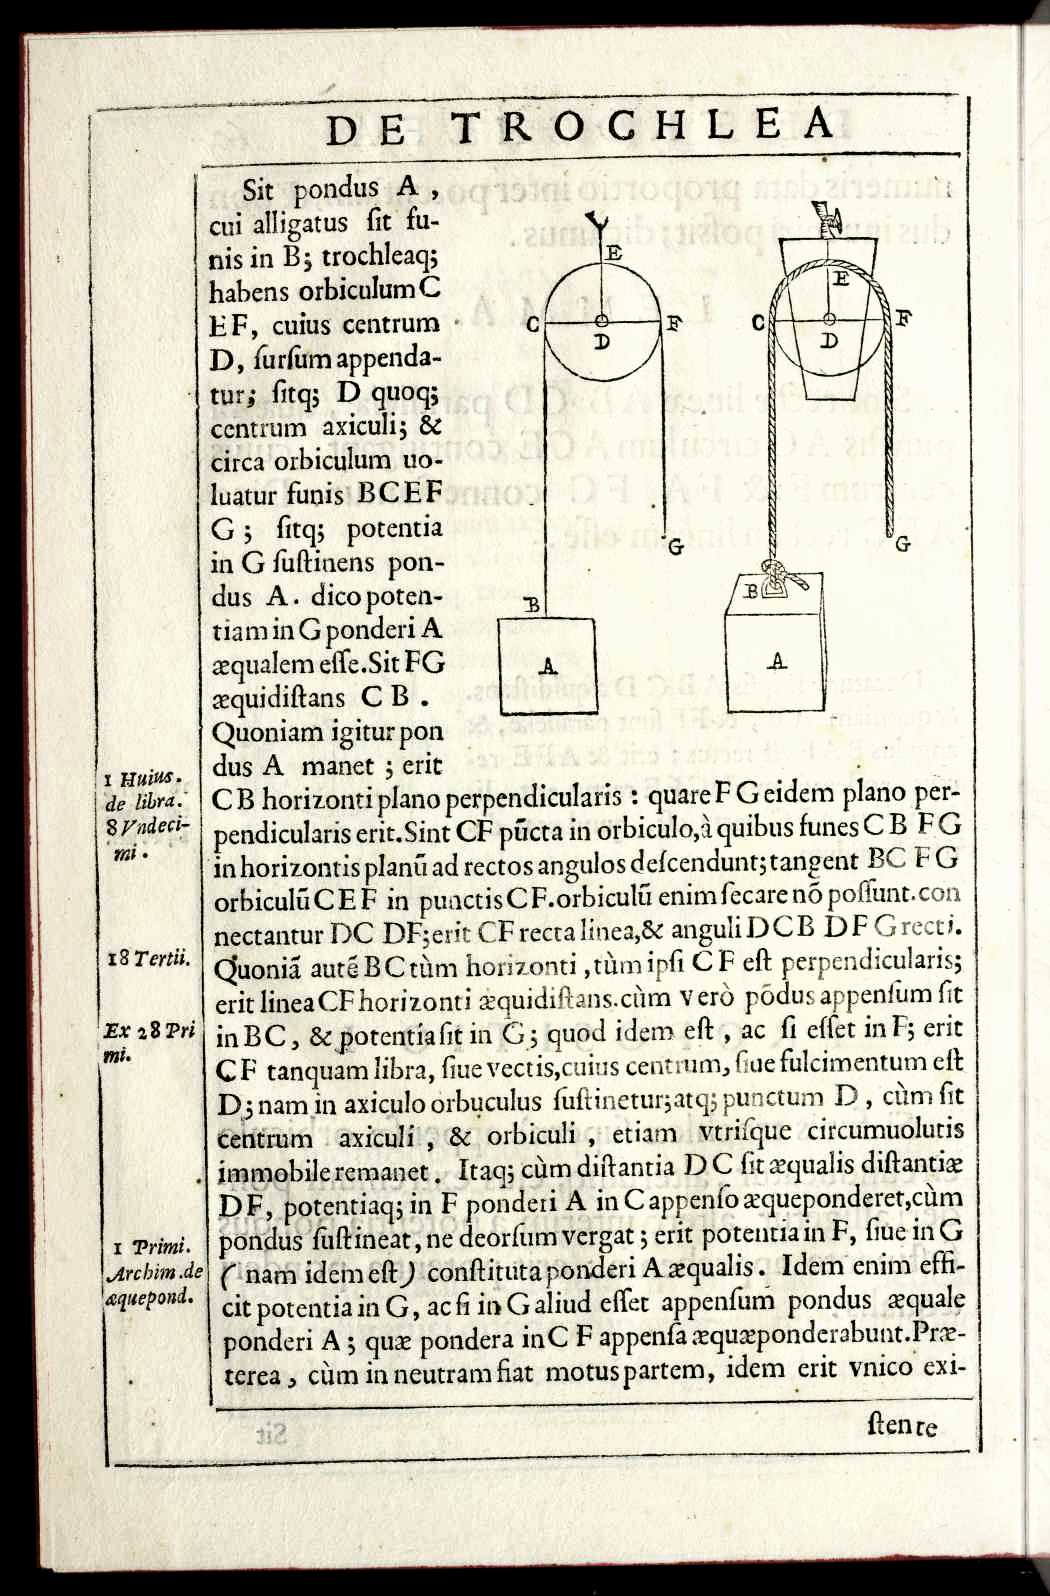 DE TROCHLEA
Sit pondus A,
cui alligatus ſit fu-
nis in B; trochleaq;
habens orbiculum C
EF, cuius centrum
D, ſurſum appenda-
tur; ſitq; D quoq;
centrum axiculi; &
circa orbiculum uo-
luatur funis BCEF
G; ſitq; potentia
in G ſuſtinens pon-
dus A. dico poten-
tiam in G ponderi A
æqualem eſſe. Sit FG
æquidiſtans CB.
Quoniam igitur pon
dus A manet; erit
CB horizonti plano perpendicularis: quare FG eidem plano per-
pendicularis erit. Sint CF pūcta in orbiculo, à quibus funes CB FG
in horizontis planū ad rectos angulos deſcendunt; tangent BC FG
orbiculū CEF in punctis CF. orbiculū enim ſecare nō poſſunt. con
nectantur DC DF; erit CF recta linea, & anguli DCB DFG recti.
Quoniā autē BC tùm horizonti, tùm ipſi CF eſt perpendicularis;
erit linea CF horizonti æquidiſtans. cùm verò pōdus appenſum ſit
in BC, & potentia ſit in G; quod idem eſt, ac ſi eſſet in F; erit
CF tanquam libra, ſiue vectis, cuius centrum, ſiue fulcimentum eſt
D; nam in axiculo orbuculus ſuſtinetur; atq; punctum D, cùm ſit
centrum axiculi, & orbiculi, etiam vtriſque circumuolutis
immobile remanet. Itaq; cùm diſtantia DC ſit æqualis diſtantiæ
DF, potentiaq; in F ponderi A in C appenſo æqueponderet, cùm
pondus ſuſtineat, ne deorſum vergat; erit potentia in F, ſiue in G
(nam idem eſt) conſtituta ponderi A æqualis. Idem enim effi-
cit potentia in G, ac ſi in G aliud eſſet appenſum pondus æquale
ponderi A; quæ pondera in CF appenſa æquæponderabunt. Præ-
terea, cùm in neutram fiat motus partem, idem erit vnico exi-
ſtente
1 Huius.
de libra.
8 Vndeci-
mi.
18 Tertii.
Ex 28 Pri
mi.
1 Primi.
Archim. de
æquepond.
E
C
F
D
G
B
A
E
C
F
D
G
B
A